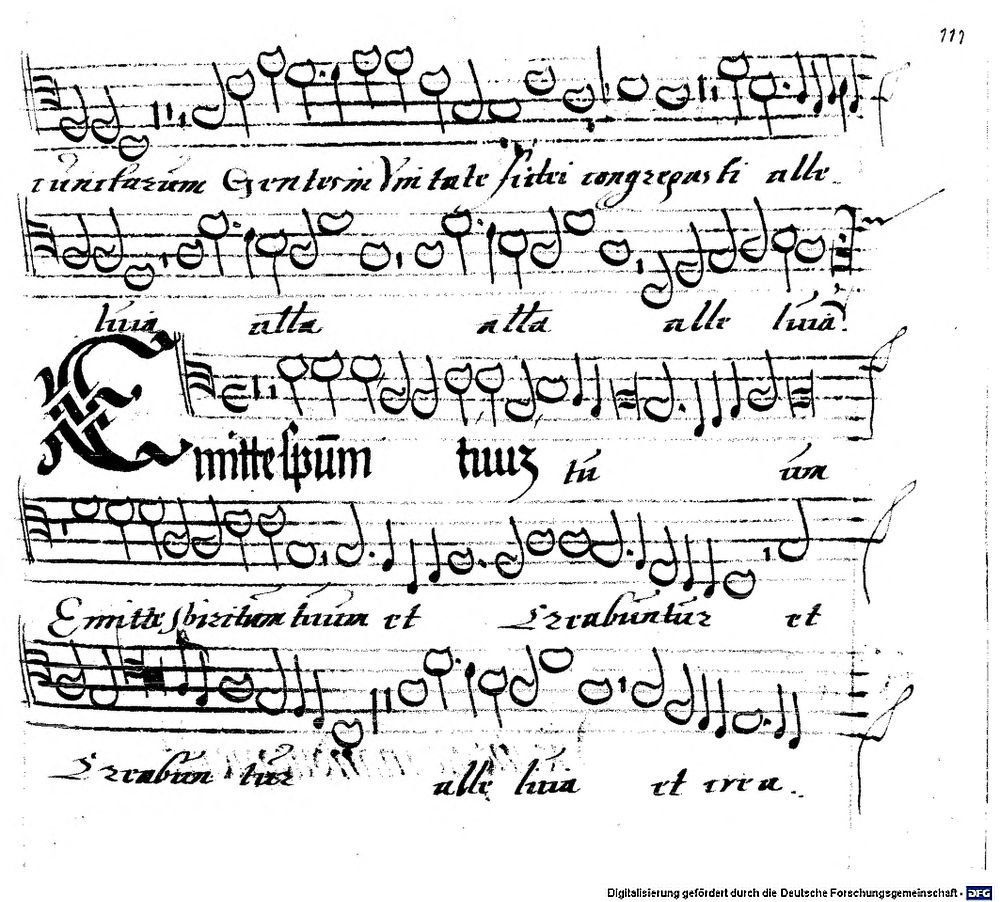 111
cunctarum Gentes in Unitate fidei congregasti alle
luia alla alla alle luia.
Emitte spūm tuuz tu um
Emitte spiritum tuum et Creabuntur et
Creabun tur alle luia et crea
Digitalisierung gefördert durch die Deutsche Forschungsgemeinschaft - DFG